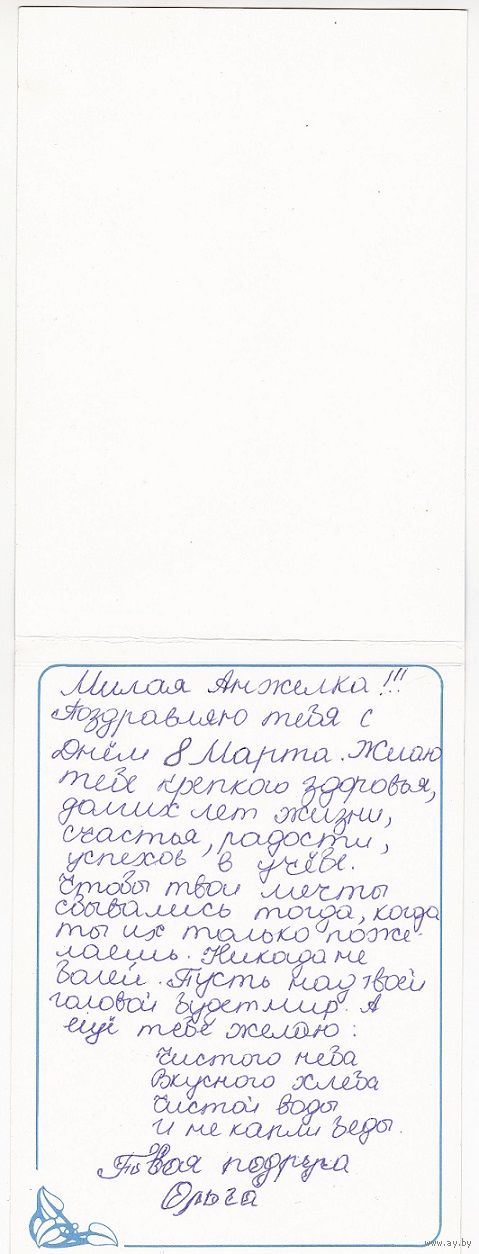 Милая Анжелка!!!
Поздравляю тебя с
Днём 8 Марта. Желаю
тебе крепкого здоровья,
долгих лет жизни,
счастья, радости,
успехов в учёбе.
Чтобы твои мечты
сбывались тогда, когда
ты их только поже-
лаешь. Никогда не
болей. Пусть над твоей
головой будет мир. А
ещё тебе желаю:
Чистого неба
Вкусного хлеба
Чистой воды
И не капли беды.
Твоя подруга
Ольга
www.ay.by